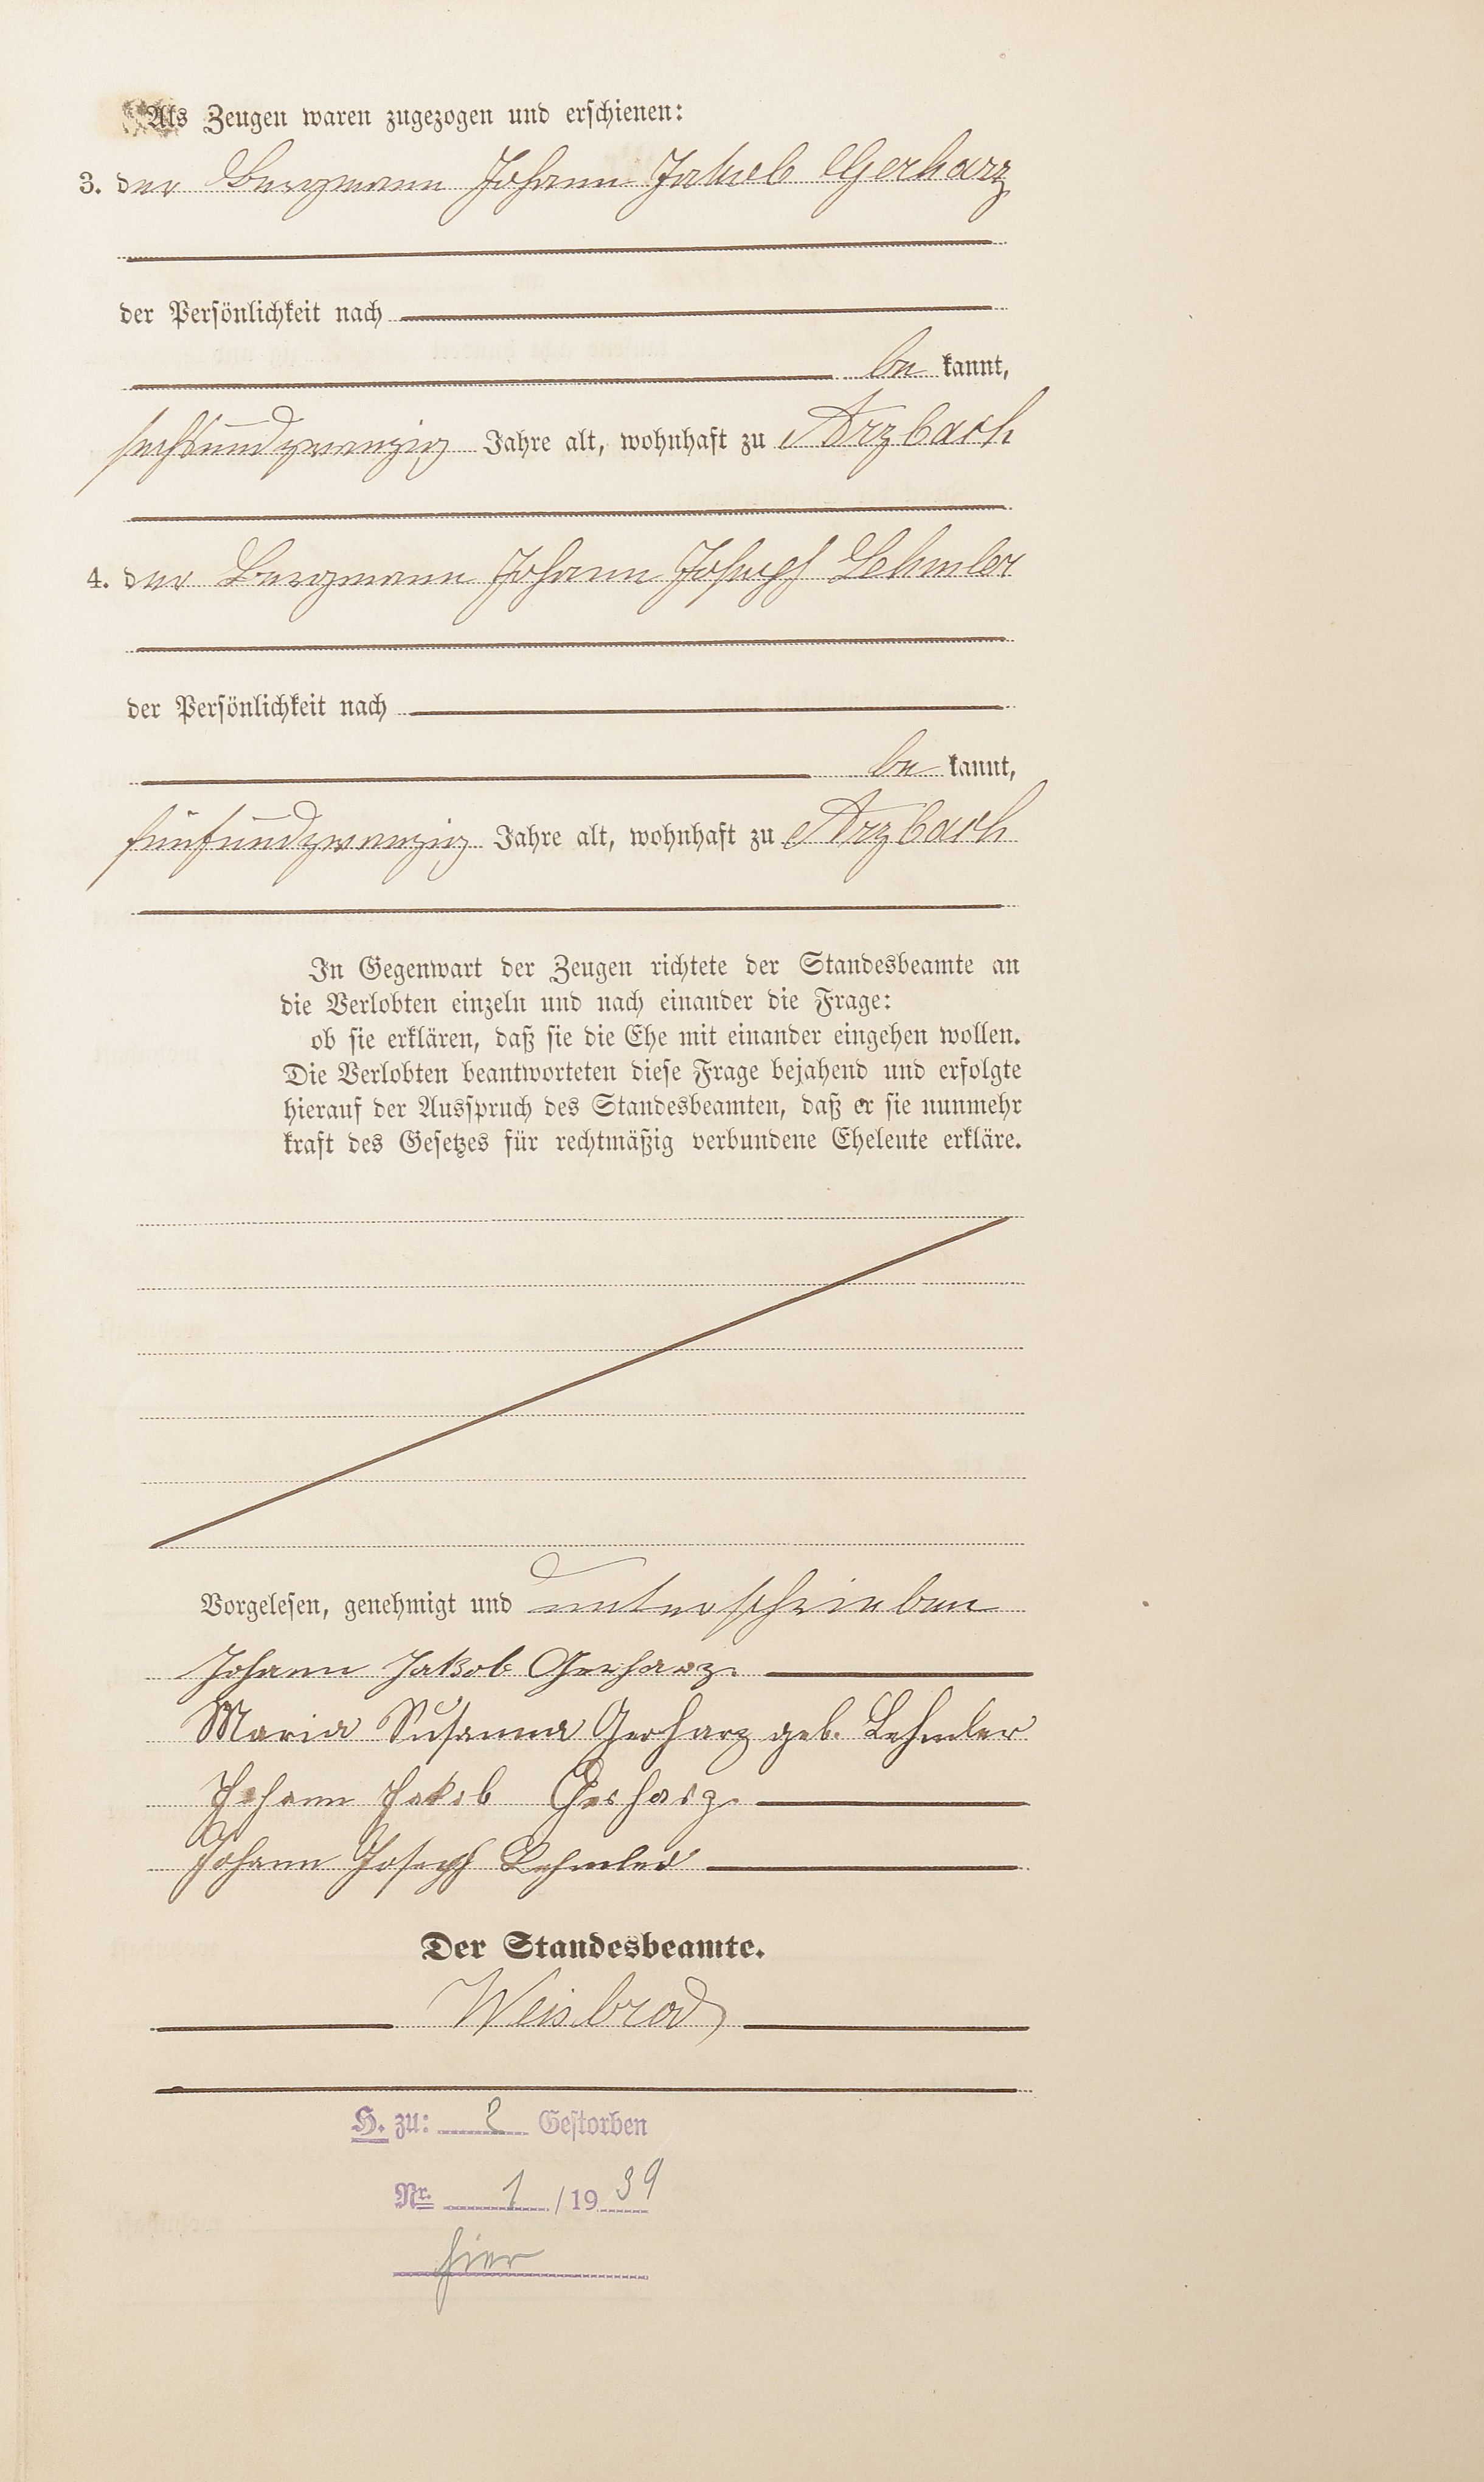 Als Zeugen waren zugezogen und erschienen:
3. der Bergmann Johann Jakob Gerharz
der Persönlichkeit nach
be kannt,
sechsundzwanzig Jahre alt, wohnhaft zu Arzbach
4. der Bergmann Johann Joseph Lehmler
der Persönlichkeit nach
be kannt,
fünfundzwanzig Jahre alt, wohnhaft zu Arzbach
In Gegenwart der Zeugen richtete der Standesbeamte an
die Verlobten einzeln und nach einander die Frage:
ob sie erklären, daß sie die Ehe mit einander eingehen wollen.
Die Verlobten beantworteten diese Frage bejahend und erfolgte
hierauf der Ausspruch des Standesbeamten, daß er sie nunmehr
kraft des Gesetzes für rechtmäßig verbundene Eheleute erkläre.
Vorgelesen, genehmigt und unterschrieben
Johann Jakob Gerharz.
Maria Susanna Gerharz geb. Lehmler
Johann Jakob Gerharz.
Johann Joseph Lehmler
Der Standesbeamte.
Weisbrod
H. zu: 2 Gestorben
Nr. 1 / 19 39
hier